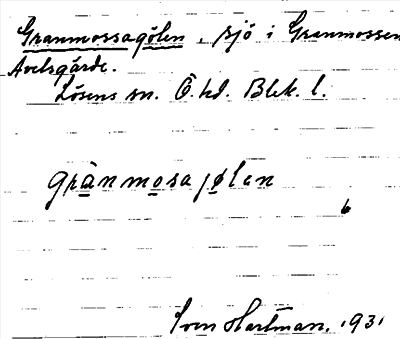 Granmossagölen, sjö i Granmossen
Avelsgärde.
Lösens sn. Ö. hd. Blek. l.
grànmosajølan
6
Sven Hartman, 1931